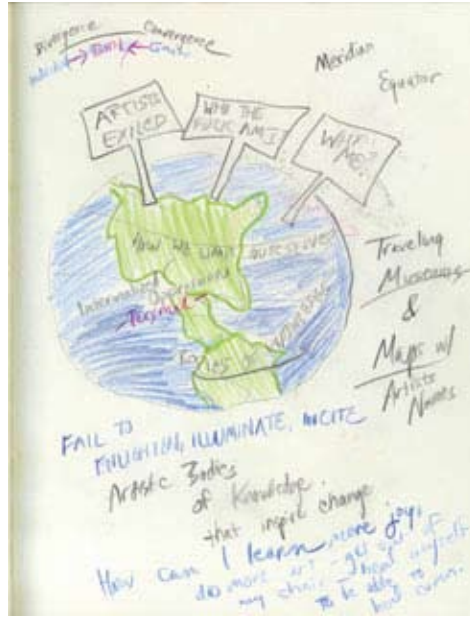 Divergence Convergence
Meridian
Equator
ARTISTS
EXILED
WHO THE
FUCK AM I
WHY
ME?
HOW WE WANT OURSELVES
Internalized Oppression
Traveling
Museums
&
Maps w/
Artists
Names
FAIL TO
ENLIGHTEN, ILLUMINATE, INCITE
Artistic Bodies
of Knowledge.
that inspire change
How can I learn more joy,
do more art - get out of
my chair - heal myself
to be able to